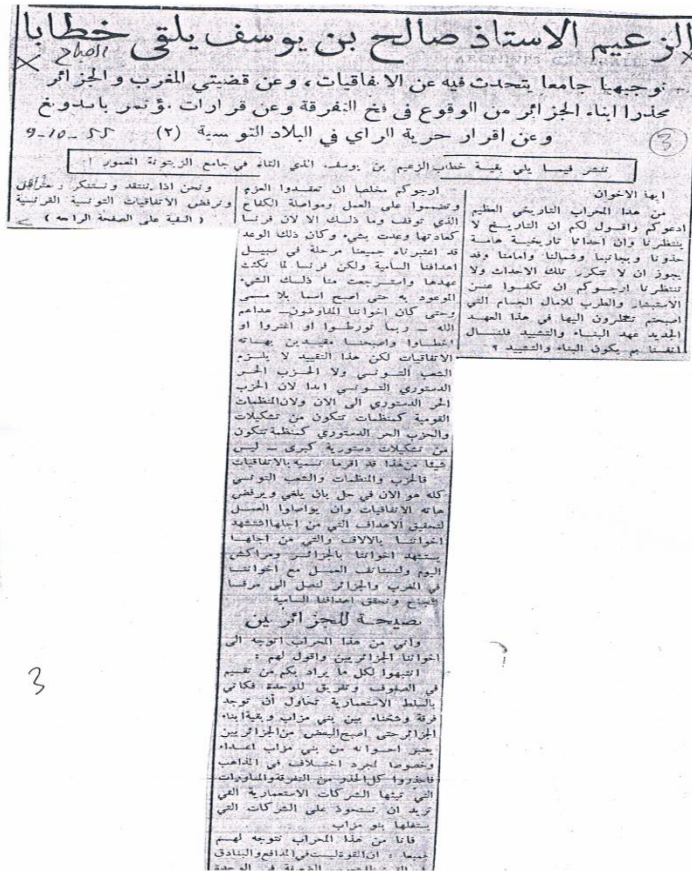 الزعيم الاستاذ صالح بن يوسف يلقي خطابا
توجيهيا جامعا يتحدث فيه عن الاتفاقيات، وعن قضيتي المغرب والجزائر
محذرا ابناء الجزائر من الوقوع في فخ التفرقة وعن قرارات مؤتمر باندونغ
وعن اقرار حرية الراي في البلاد التونسية (٢)
9-10-55
3
ننشر فيما يلي بقية خطاب الزعيم بن يوسف الذي القاه في جامع الزيتونة المعمور :
ايها الاخوان
من هذا المحراب التاريخي العظيم
ادعوكم واقول لكم ان التاريخ لا
ينتظرنا وان احداثا تاريخية هامة
حذونا وبجانبنا وشمالنا وامامنا وقد
يجوز ان لا تتكرر تلك الاحداث ولا
تنتظرنا ارجوكم ان تكفوا عن
الاستبشار والطرب للامال الجسام التي
اصبحتم تنظرون اليها في هذا العهد
الجديد عهد البناء والتشييد فلنسأل
انفسنا بم يكون البناء والتشييد ؟
ارجوكم مخلصا ان تعقدوا العزم
وتصمموا على العمل ومواصلة الكفاح
الذي توقف وما ذلك الا لان فرنسا
كعادتها وعدت بشيء وكان ذلك الوعد
قد اعتبرناه جميعنا مرحلة في سبيل
اهدافنا السامية ولكن فرنسا لما نكثت
عهدها واسترجعت منا ذلك الشيء
الموعود به حتى اصبح اسما بلا مسمى
وحتى كان اخواننا المفاوضون ـ هداهم
الله ـ وربما تورطوا او اغتروا او
اخطاوا واصبحنا مقيدين بهاته
الاتفاقيات لكن هذا التقييد لا يلزم
الشعب التونسي ولا الحزب الحر
الدستوري التونسي ابدا لان الحزب
الحر الدستوري الى الان ولان المنظمات
القومية كمنظمات تتكون من تشكيلات
والحزب الحر الدستوري كمنظمة تتكون
من تشكيلات دستورية كبرى ـ ليس
شيئا من هذا قد اقر ما نسميه بالاتفاقيات
فالحزب والمنظمات والشعب التونسي
كله هو الان في حل بان يلغي ويرفض
هاته الاتفاقيات وان يواصلوا العمل
لتحقيق الاهداف التي من اجلها استشهد
اخواننا بالالاف والتي من اجلها
يستشهد اخواننا بالجزائر ومراكش
اليوم ولنستانف العمل مع اخواننا
في المغرب والجزائر لنصل الى مرفا
النجاح ونحقق اهدافنا السامية
نصيحة للجزائريين
واني من هذا المحراب اتوجه الى
اخواننا الجزائريين واقول لهم :
انتبهوا لكل ما يراد بكم من تقسيم
في الصفوف وتفريق للوحدة فكاني
بالسلط الاستعمارية تحاول أن توجد
فرقة وشحناء بين بني مزاب وبقية ابناء
الجزائر حتى اصبح البعض من الجزائريين
يعتبر اخوانه من بني مزاب اعداء
وخصوصا لمجرد اختلاف في المذاهب
فاحذروا كل الحذر من التفرقة والمناورات
التي تبثها الشركات الاستعمارية التي
تريد ان تستحوذ على الشركات التي
يستغلها بنو مزاب
فانا من هذا المحراب نتوجه لهم
جميعا : ان القوة ليست في المدافع والبنادق
في الوحدة
ونحن اذا ننتقد ونستنكر
ونرفض الاتفاقيات التونسية الفرنسية
( البقية على الصفحة الرابعة )
3